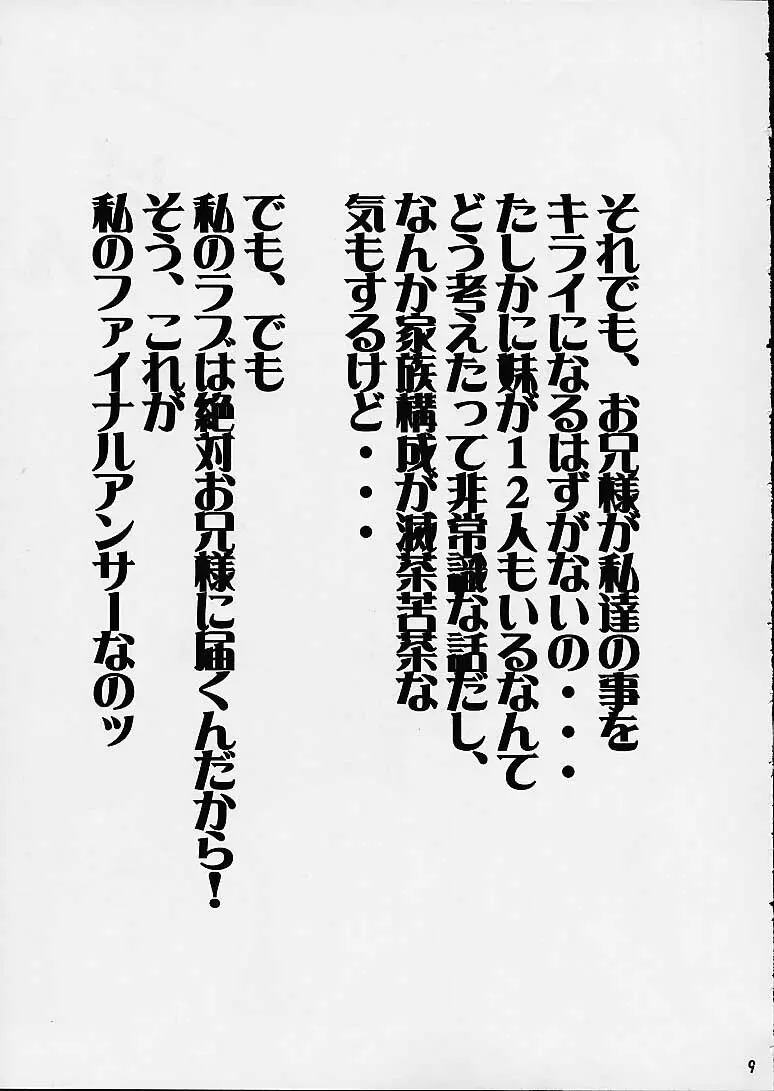 それでも、お兄様が私達の事を
キライになるはずがないの・・・
たしかに妹が12人もいるなんて
どう考えたって非常識な話だし、
なんか家族構成が滅茶苦茶な
気もするけど・・・
でも、でも
私のラブは絶対お兄様に届くんだから！
そう、これが
私のファイナルアンサーなのッ
9